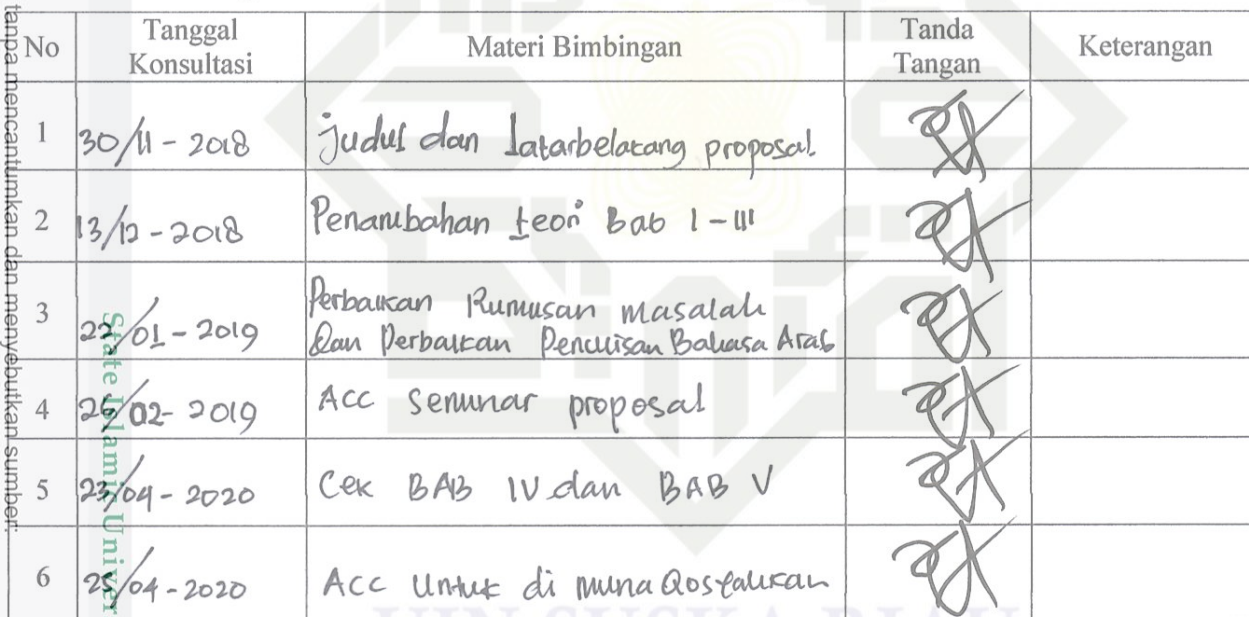 tanpa mencantumkan dan menyebutkan sumber:
State Islamic Univer
No Tanggal Konsultasi Materi Bimbingan Tanda Tangan Keterangan
1 30/11-2018 judul dan latarbelakang proposal
2 13/12-2018 Penambahan teori Bab I-III
3 22/01-2019 Perbaikan Rumusan masalah
dan Perbaikan Penulisan Bahasa Arab
4 26/02-2019 Acc Seminar proposal
5 23/04-2020 Cek BAB IV dan BAB V
6 25/04-2020 Acc Untuk di muna Qosyahkan
UIN SUSKA RIAU